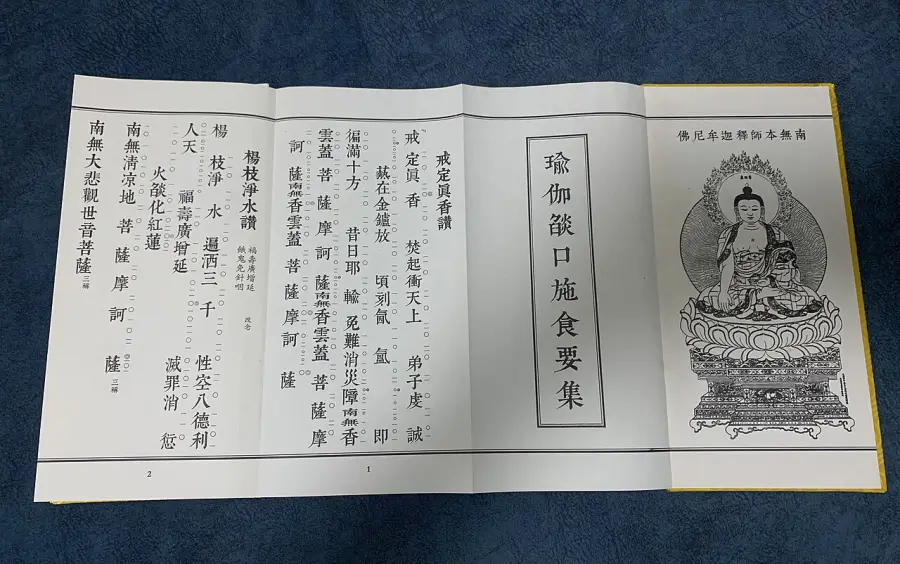 南無本師釋迦牟尼佛
瑜伽燄口施食要集
戒定眞香讚
戒定眞香 焚起衝天上 弟子虔誠
爇在金鑪放 頃刻氤氳 即
徧滿十方 昔日耶輸 免難消災障南無香
雲蓋菩薩摩訶薩南無香雲蓋菩薩摩
訶薩南無香雲蓋菩薩摩訶薩
1
楊枝淨水讚 福壽廣增延 餓鬼免針咽 改念
楊枝淨水 遍洒三千 性空八德利
人天 福壽廣增延 滅罪消愆
火燄化紅蓮
南無清涼地菩薩摩訶薩 三稱
南無大悲觀世音菩薩 三稱
2